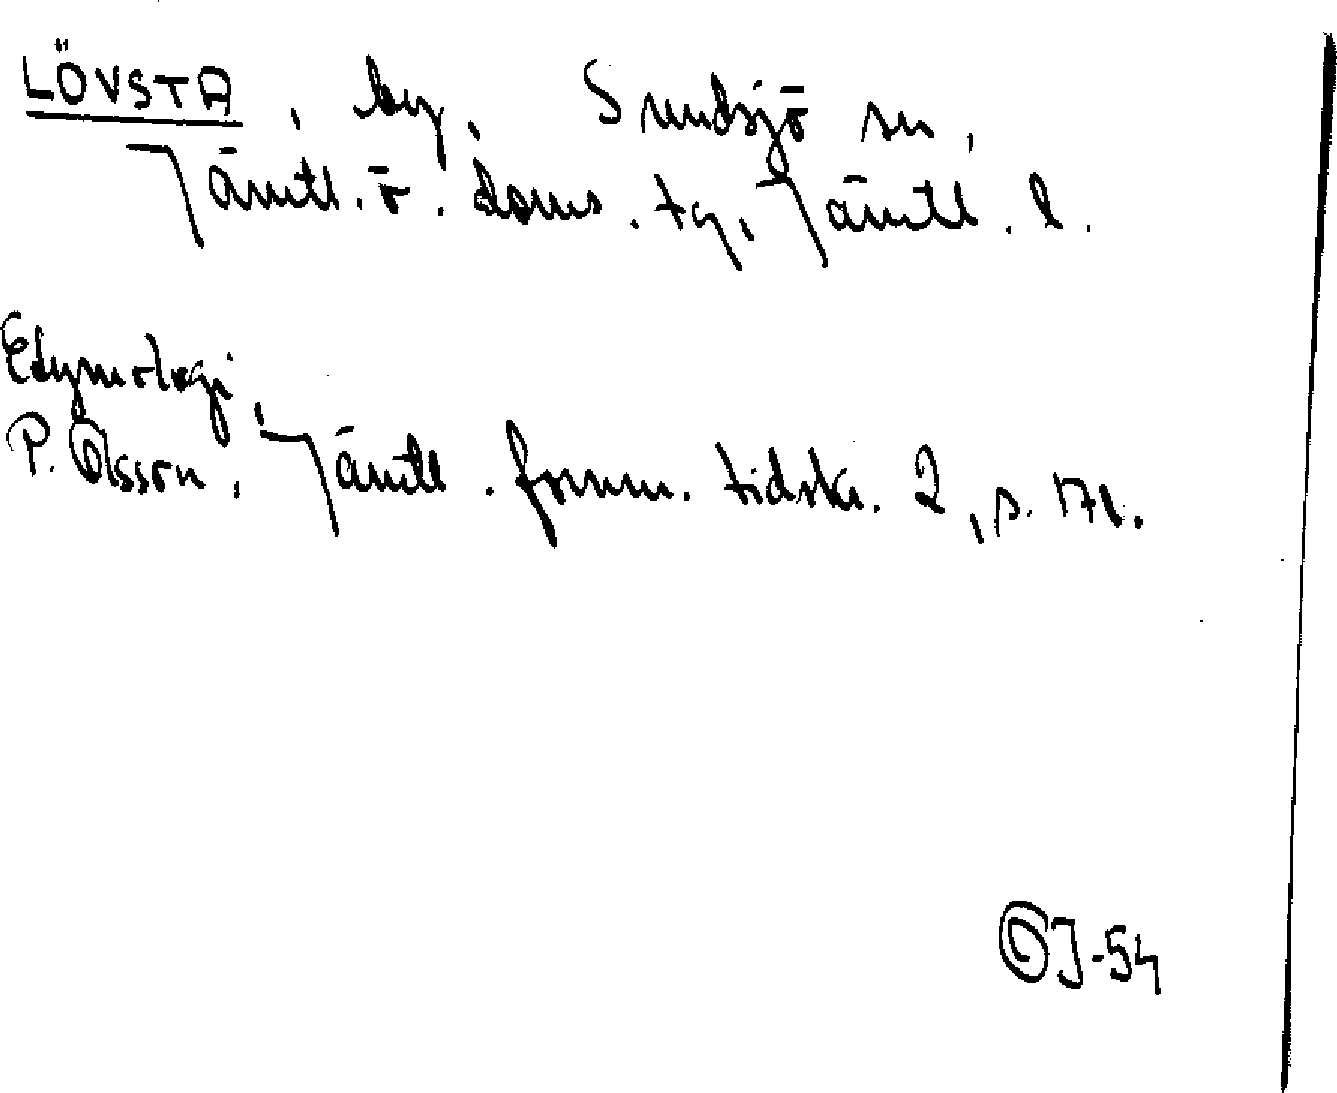 LÖVSTA, by, Sundsjö sn,
Jämtl. ö. doms. tg, Jämtl. l.
Etymologi,
P. Olsson, Jämtl. fornm. tidskr. 2, s. 171.
OJ-54